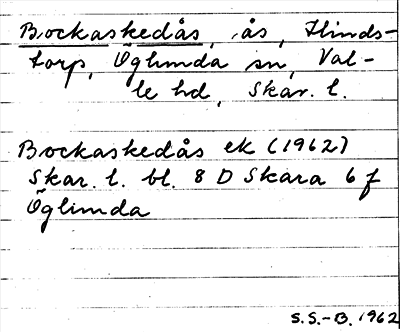 Bockaskedås, ås, Hinds-
torp, Öglunda sn, Val-
le hd, Skar. l.
Bockaskedås ek (1962)
Skar. l. bl. 8 D Skara 6 f
Öglunda
S.S.-B. 1962